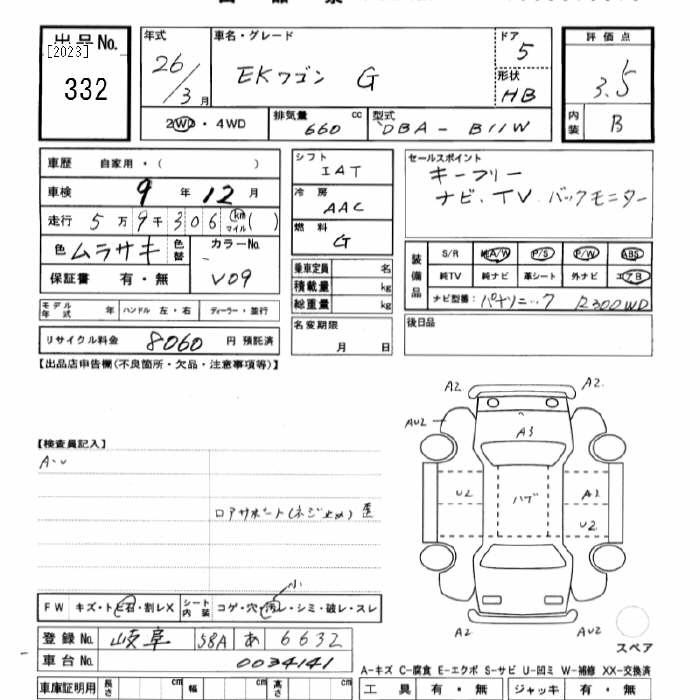 出品No.
[2023]
332
年式 26/3月
車名・グレード EKワゴン G
ドア 5
形状 HB
評価点 3.5
内装 B
2WD・4WD
排気量 660 cc
型式 DBA-B11W
車歴 自家用・( )
車検 9年12月
走行 5万9千306 km マイル( )
色 ムラサキ 色替 カラーNo. V09
保証書 有・無
モデル年式 年 ハンドル 左・右 ディーラー・並行
リサイクル料金 8060 円 預託済
シフト IAT
冷房 AAC
燃料 G
乗車定員 名
積載量 kg
総重量 kg
名変期限 月 日
セールスポイント
キーフリー
ナビ、TV バックモニター
装備品 S/R 純A/W P/S P/W ABS
純TV 純ナビ 革シート 外ナビ エアB
ナビ型番: パナソニック R300WD
後日品
【出品店申告欄(不良箇所・欠品・注意事項等)】
【検査員記入】
A・U
ロアサポート(ネジ止め) 歪
小
FW キズ・ト ビ石・割レX シート内装 コゲ・穴・汚レ・シミ・破レ・スレ
登録No. 岐阜 58A あ 6632
車台No. 0034141
車庫証明用 長さ cm 幅 cm 高さ cm
A2 A2
AU2
A3
U2 ハブ A2
U2
A2 AU2
スペア
A-キズ C-腐食 E-エクボ S-サビ U-凹ミ W-補修 XX-交換済
工具 有・無 ジャッキ 有・無